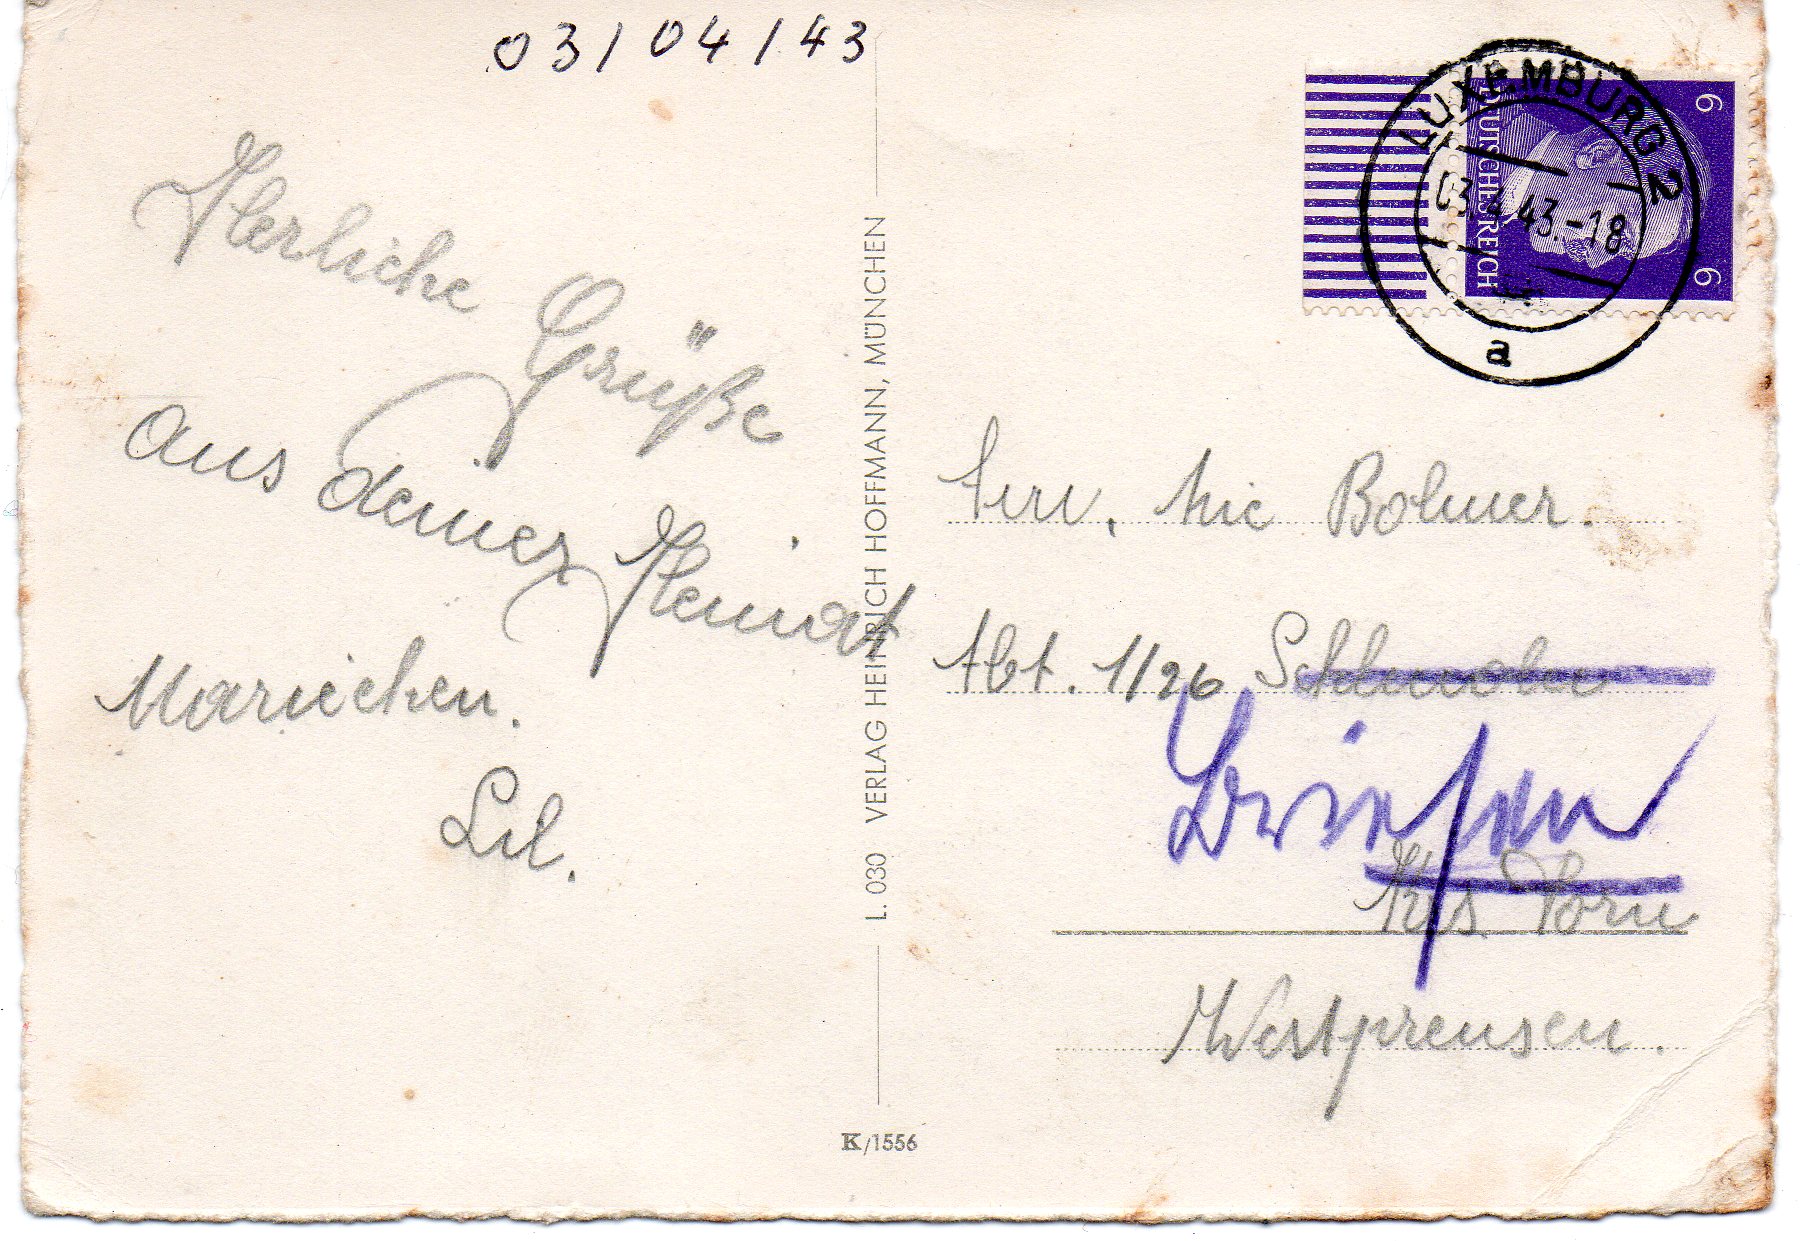 03/04/43
Herliche Grüße
aus deiner Heimat
Mariechen.
Lil.
L. 030 VERLAG HEINRICH HOFFMANN, MÜNCHEN
K/1556
LUXEMBURG 2
03.4.43.-18
a
DEUTSCHES REICH
6
6
Nic Bolmer.
Abt. 1/26
Briesen
Krs Torn
Westpreusen.